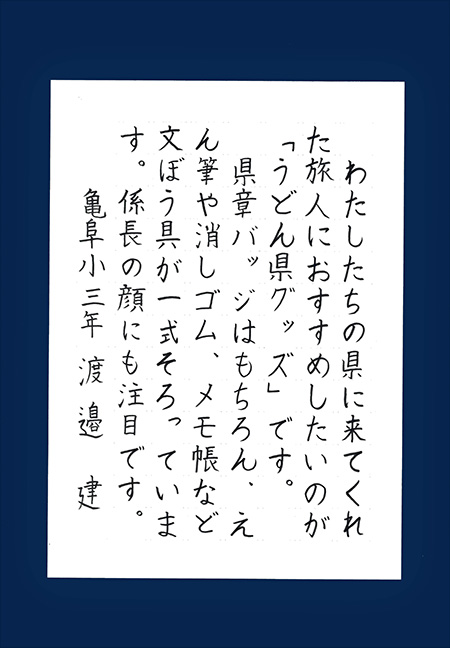 わたしたちの県に来てくれ
た旅人におすすめしたいのが
「うどん県グッズ」です。
県章バッジはもちろん、え
ん筆や消しゴム、メモ帳など
文ぼう具が一式そろっていま
す。係長の顔にも注目です。
亀阜小三年 渡邉 建